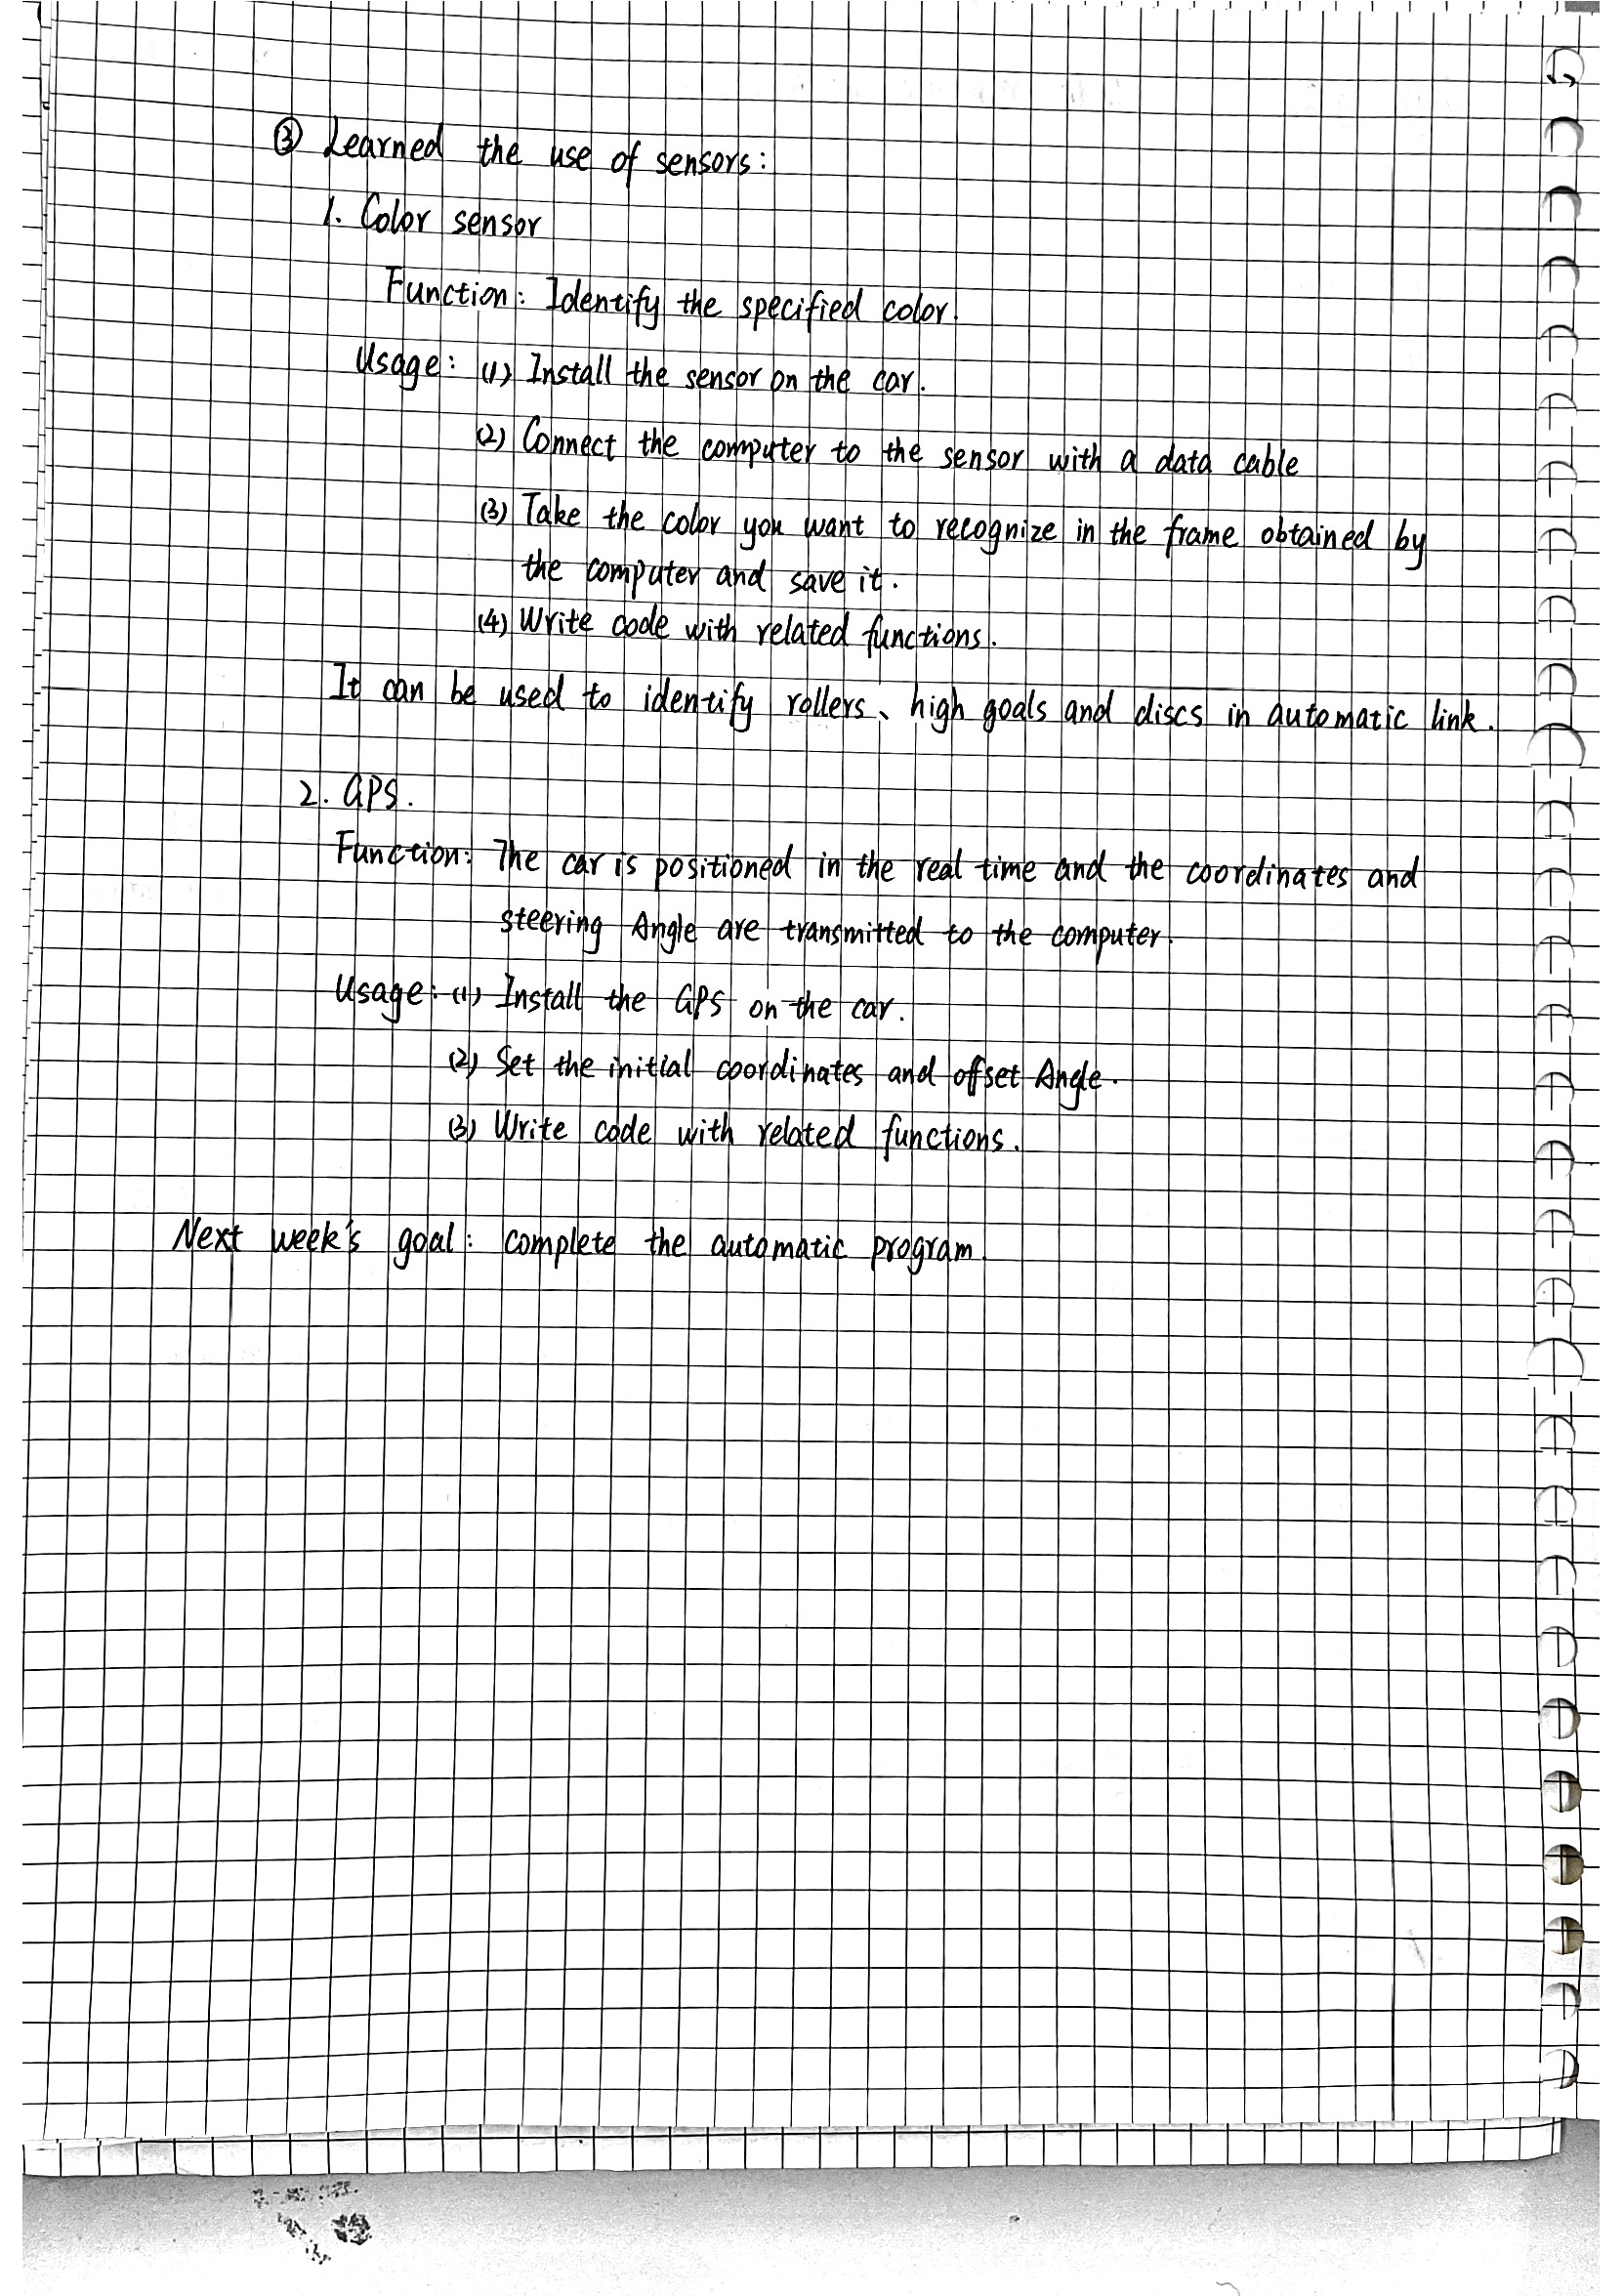 ③ Learned the use of sensors:
1. Color sensor
Function: Identify the specified color.
Usage: (1) Install the sensor on the car.
(2) Connect the computer to the sensor with a data cable
(3) Take the color you want to recognize in the frame obtained by
the computer and save it.
(4) Write code with related functions.
It can be used to identify rollers、high goals and discs in automatic link.
2. GPS.
Function: The car is positioned in the real time and the coordinates and
steering Angle are transmitted to the computer.
Usage: (1) Install the GPS on the car.
(2) Set the initial coordinates and offset Angle.
(3) Write code with related functions.
Next week's goal: complete the automatic program.